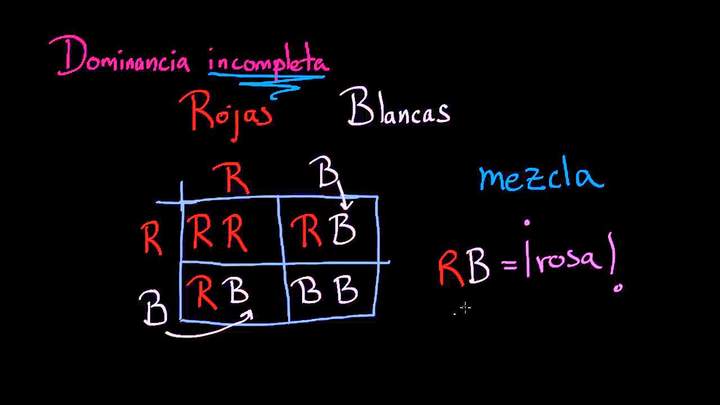 Dominancia incompleta
Rojas Blancas
R B
mezcla
R RR RB
RB = ¡rosa!
B RB BB